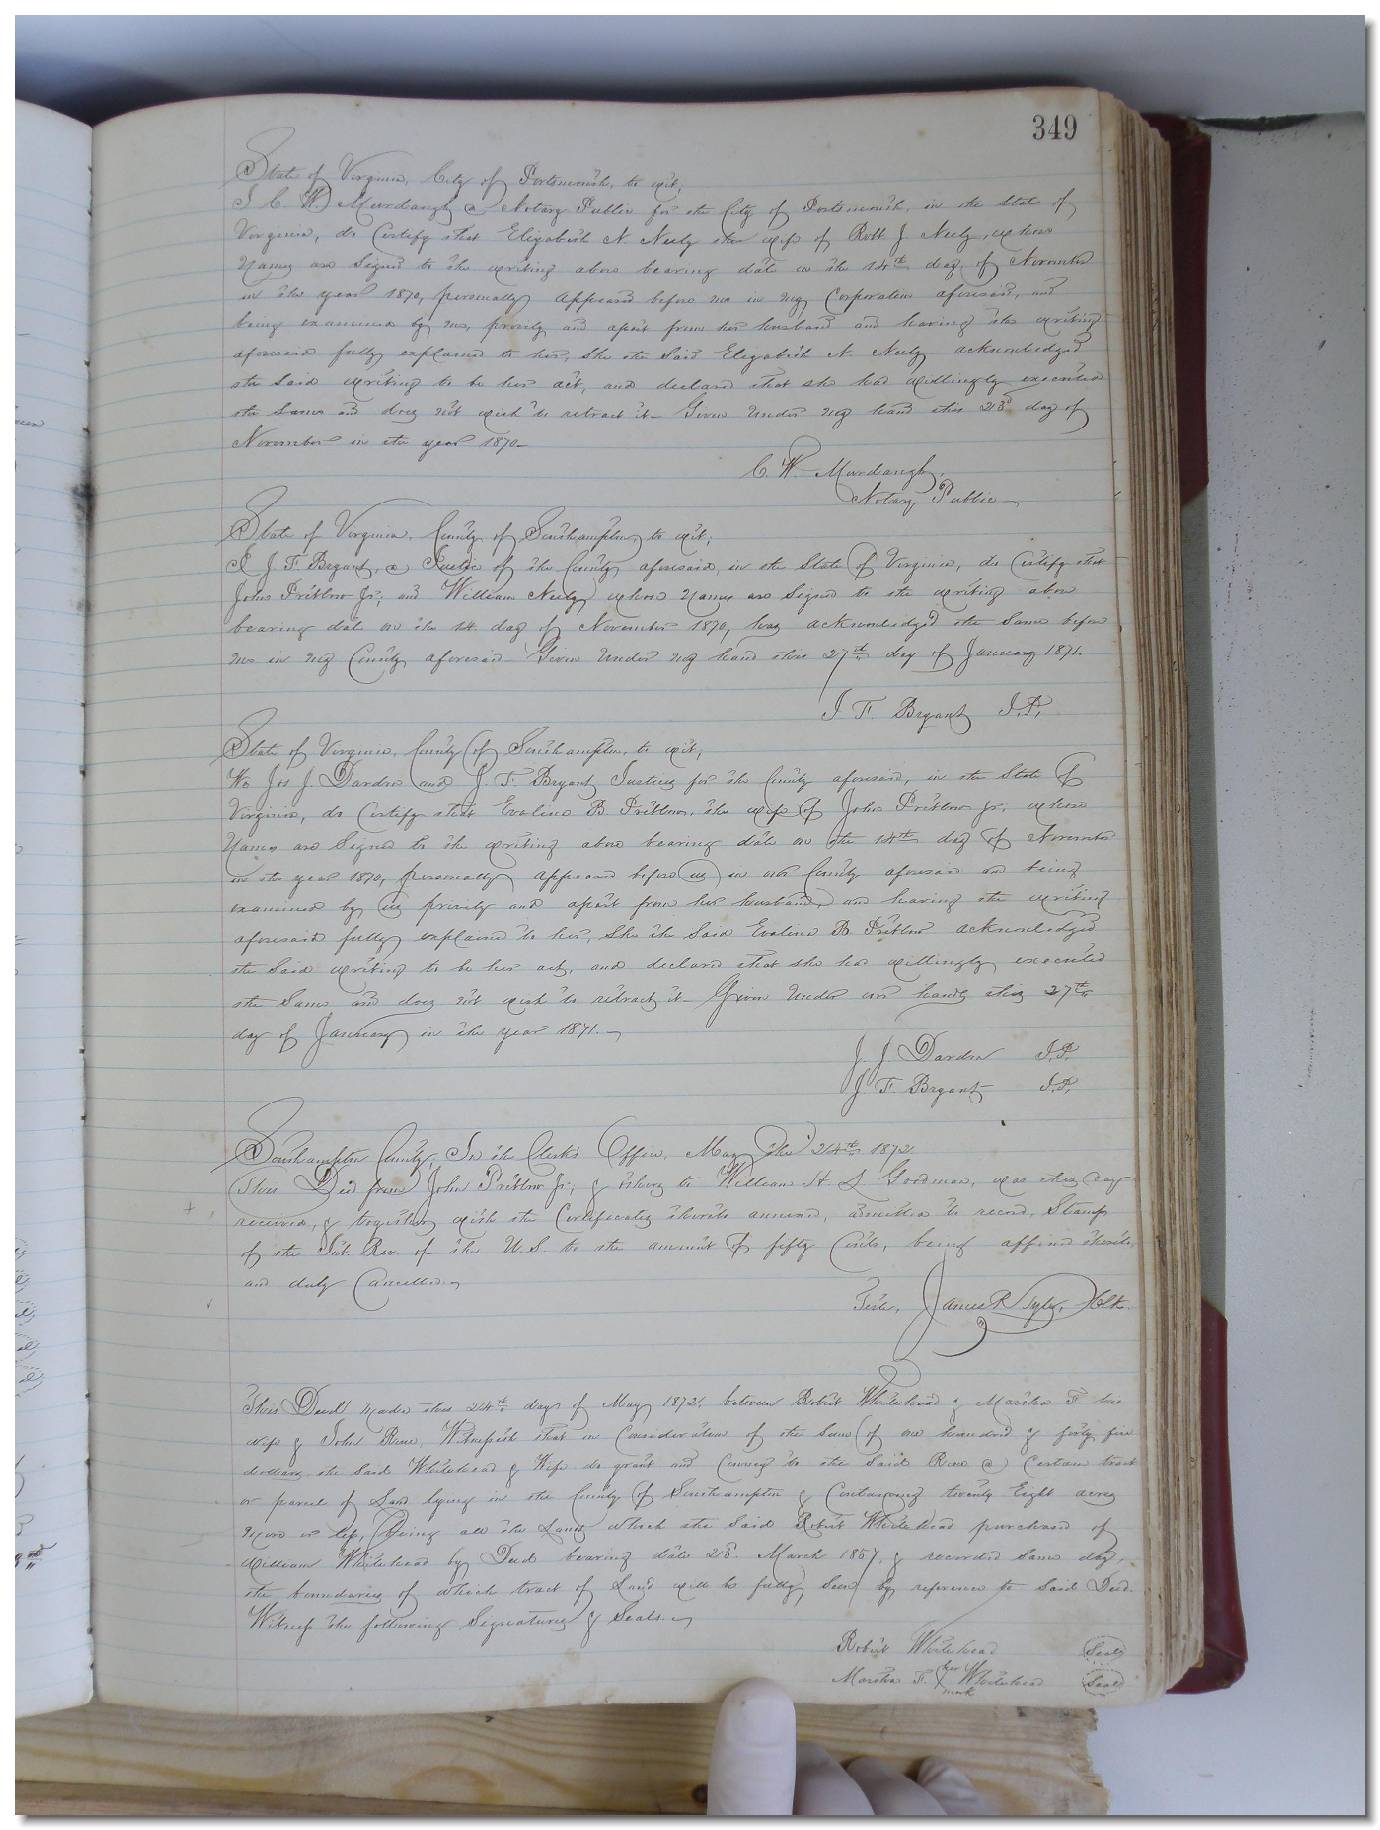 349
State of Virginia, City of Portsmouth, to wit;
I C. W. Murdaugh a Notary Public for the City of Portsmouth, in the State of
Virginia, do Certify that Elizabeth N. Neely the wife of Robt J Neely, whose
Names are Signed to the writing above bearing date on the 14th day of November
in the year 1870, personally appeared before me in my Corporation aforesaid, and
being examined by me, privily and apart from her husband and having the writing
aforesaid fully explained to her, She the Said Elizabeth N. Neely acknowledged
the Said writing to be her act, and declared that she had willingly executed
the Same and does not wish to retract it - Given under my hand this 23d day of
November in the year 1870 -
C. W. Murdaugh,
Notary Public
State of Virginia, County of Southampton to wit;
I J F Bryant, a Justice of the County aforesaid, in the State of Virginia, do Certify that
John Pretlow Jr; and William Neely whose Names are Signed to the writing above
bearing date on the 14. day of November 1870, has acknowledged the Same before
me in my County aforesaid. Given under my hand this 27th day of January 1871.
J F. Bryant J.P.
State of Virginia, County of Southampton, to wit;
We Jas J. Darden and J. F. Bryant, Justices for the County aforesaid, in the State of
Virginia, do Certify that Evelina B Pretlow, the wife of John Pretlow Jr; whose
Names are Signed to the writing above bearing date on the 14th day of November
in the year 1870, personally appeared before us in our County aforesaid and being
examined by us privily and apart from her husband, and having the writing
aforesaid fully explained to her, She the Said Evelina B. Pretlow acknowledged
the Said writing to be her act, and declared that she had willingly executed
the Same and does not wish to retract it - Given Under our hands this 27th
day of January in the year 1871.
J. J Darden J.P.
J F. Bryant J.P.
Southampton County, In the Clerk's Office, May the 24th 1872.
This Deed from John Pretlow Jr; & others to William H. L Goodman, was this day
received, & together with the Certificates thereto annexed, admitted to record, Stamp
of the Int. Rev. of the U.S. to the amount of fifty Cents, being affixed thereto,
and duly Cancelled.
Teste, James R Tyler, Clk.
This Deed made this 24th day of May 1872, between Robert Whitehead & Martha F his
wife & John Rowe, Witnesseth that in Consideration of the Sum of one hundred & forty five
dollars, the Said Whitehead & Wife do grant and Convey to the Said Rowe a Certain tract
or parcel of Land lying in the County of Southampton & Containing twenty Eight acres
More or less, being all the Land which the Said Robert Whitehead purchased of
William Whitehead by Deed bearing date 23d. March 1857, & recorded Same day,
the boundaries of which tract of Land will be fully Seen by reference to Said Deed.
Witness the following Signatures & Seals.
Robert Whitehead Seal
Martha F. her X mark Whitehead Seal